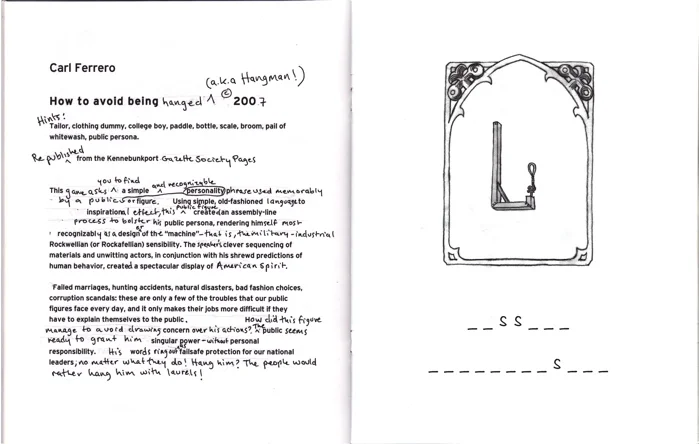 Carl Ferrero
(a.k.a Hangman!)
How to avoid being hanged ^ © 2007
Hints:
Tailor, clothing dummy, college boy, paddle, bottle, scale, broom, pail of
whitewash, public persona.
Republished from the Kennebunkport Gazette Society Pages
you to find and recognizable
This game asks ^ a simple ^ personality phrase used memorably
by a public or figure. Using simple, old-fashioned language to
inspirational effect, this public figure created an assembly-line
process to bolster his public persona, rendering himself most
recognizably as a design of the "machine"–that is, the military-industrial
Rockwellian (or Rockafellian) sensibility. The speaker's clever sequencing of
materials and unwitting actors, in conjunction with his shrewd predictions of
human behavior, created a spectacular display of American Spirit.
Failed marriages, hunting accidents, natural disasters, bad fashion choices,
corruption scandals: these are only a few of the troubles that our public
figures face every day, and it only makes their jobs more difficult if they
have to explain themselves to the public. How did this figure
manage to avoid drawing concern over his actions? The public seems
ready to grant him singular power – without personal
responsibility. His words ring out as failsafe protection for our national
leaders, no matter what they do! Hang him? The people would
rather hang him with laurels!
_ _ S S _ _ _
_ _ _ _ _ _ _ _ S _ _ _